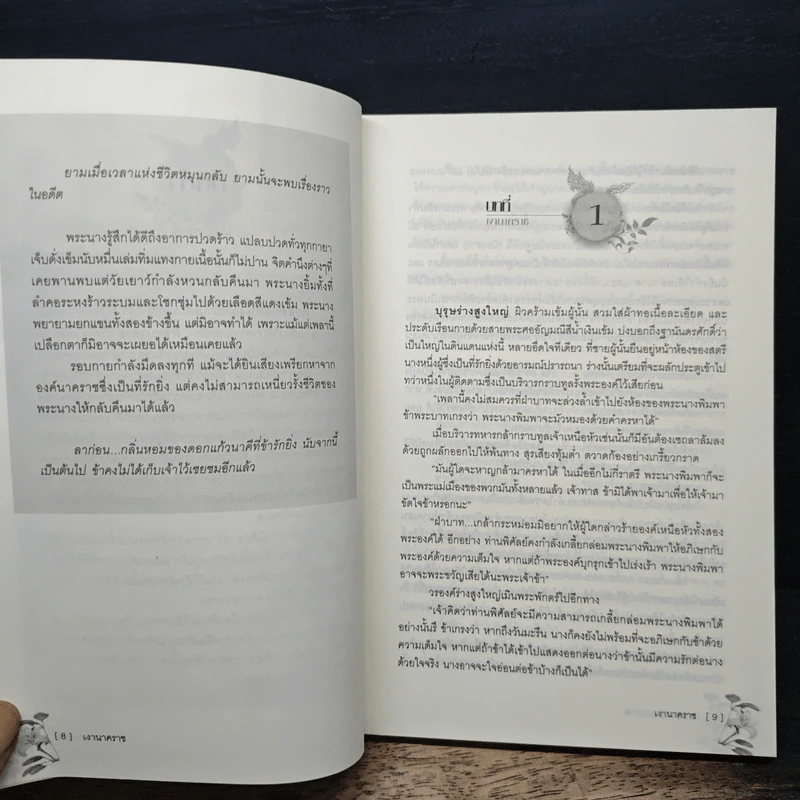 ยามเมื่อเวลาแห่งชีวิตหมุนกลับ ยามนั้นจะพบเรื่องราว
ในอดีต
พระนางรู้สึกได้ดีถึงอาการปวดร้าว แปลบปวดทั่วทุกกายา
เจ็บดั่งเข็มนับหมื่นเล่มทิ่มแทงกายเนื้อนั้นก็ไม่ปาน จิตคำนึงต่างๆที่
เคยพานพบแต่วัยเยาว์กำลังหวนกลับคืนมา พระนางยิ้มทั้งที่
ลำคอระหงร้าวระบมและโชกชุ่มไปด้วยเลือดสีแดงเข้ม พระนาง
พยายามยกแขนทั้งสองข้างขึ้น แต่มิอาจทำได้ เพราะแม้แต่เพลานี้
เปลือกตาก็มิอาจจะเผยอได้เหมือนเคยแล้ว
รอบกายกำลังมืดลงทุกที แม้จะได้ยินเสียงเพรียกหาจาก
องค์นาคราชซึ่งเป็นที่รักยิ่ง แต่คงไม่สามารถเหนี่ยวรั้งชีวิตของ
พระนางให้กลับคืนมาได้แล้ว
ลาก่อน...กลิ่นหอมของดอกแก้วนาคีที่ข้ารักยิ่ง นับจากนี้
เป็นต้นไป ข้าคงไม่ได้เก็บเจ้าไว้เชยชมอีกแล้ว
[ 8 ] เงานาคราช
บทที่ 1
เงานาคราช
บุรุษร่างสูงใหญ่ ผิวคร้ามเข้มผู้นั้น สวมใส่ผ้าทอเนื้อละเอียด และ
ประดับเรือนกายด้วยสายพระศออัญมณีสีน้ำเงินเข้ม บ่งบอกถึงฐานันดรศักดิ์ว่า
เป็นใหญ่ในดินแดนแห่งนี้ หลายอึดใจทีเดียว ที่ชายผู้นั้นยืนอยู่หน้าห้องของสตรี
นางหนึ่งผู้ซึ่งเป็นที่รักยิ่งด้วยอารมณ์ปรารถนา ร่างนั้นเตรียมที่จะผลักประตูเข้าไป
ทว่าหนึ่งในผู้ติดตามซึ่งเป็นบริวารกราบทูลรั้งพระองค์ไว้เสียก่อน
"เพลานี้คงไม่สมควรที่ฝ่าบาทจะล่วงล้ำเข้าไปยังห้องของพระนางพิมพา
ข้าพระบาทเกรงว่า พระนางพิมพาจะมัวหมองด้วยคำครหาได้"
เมื่อบริวารทหารกล้ากราบทูลเจ้าเหนือหัวเช่นนั้นก็มีอันต้องเซถลาล้มลง
ด้วยถูกผลักออกไปให้พ้นทาง สุรเสียงทุ้มต่ำ ตวาดก้องอย่างเกรี้ยวกราด
"มันผู้ใดจะหาญกล้ามาครหาได้ ในเมื่ออีกไม่กี่ราตรี พระนางพิมพาก็จะ
เป็นพระแม่เมืองของพวกมันทั้งหลายแล้ว เจ้าทาส ข้ามิได้พาเจ้ามาเพื่อให้เจ้ามา
ขัดใจข้าหรอกนะ"
"ฝ่าบาท...เกล้ากระหม่อมมิอยากให้ผู้ใดกล่าวร้ายองค์เหนือหัวทั้งสอง
พระองค์ได้ อีกอย่าง ท่านพิศัลย์คงกำลังเกลี้ยกล่อมพระนางพิมพาให้อภิเษกกับ
พระองค์ด้วยความเต็มใจ หากแต่ถ้าพระองค์บุกรุกเข้าไปเร่งเร้า พระนางพิมพา
อาจจะพระขวัญเสียได้นะพระเจ้าข้า"
วรองค์ร่างสูงใหญ่เมินพระพักตร์ไปอีกทาง
"เจ้าคิดว่าท่านพิศัลย์จะมีความสามารถเกลี้ยกล่อมพระนางพิมพาได้
อย่างนั้นรึ ข้าเกรงว่า หากถึงวันมะรืน นางก็คงยังไม่พร้อมที่จะอภิเษกกับข้าด้วย
ความเต็มใจ หากแต่ถ้าข้าได้เข้าไปแสดงออกต่อนางว่าข้านั้นมีความรักต่อนาง
ด้วยใจจริง นางอาจจะใจอ่อนต่อข้าบ้างก็เป็นได้"
เงานาคราช [ 9 ]